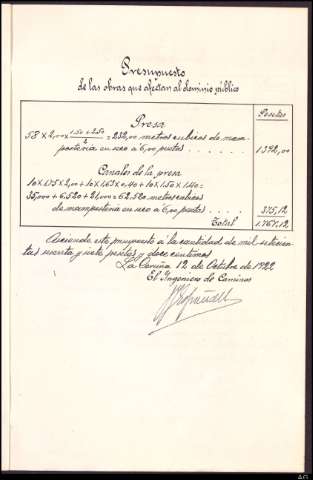 Presupuesto
de las obras que afectan al dominio público
Pesetas
Presa
58 x 2,00 x 1.50 + 2.50 / 2 = 232,00 metros cubicos de mam-
posteria en seco a 6,00 pesetas . . . . . . 1392,00
Canales de la presa
10 x 1.75 x 2,00 + 10 x 1.63 x 0.40 + 10 x 1.50 x 1.40 =
35,000 + 6.520 + 21,000 = 62.520 metros cubicos
de mamposteria en seco a 6,00 pesetas . . . . 375,12
Total 1.767,12
Asciende este presupuesto á la cantidad de mil setecien-
tas sesenta y siete pesetas y doce centimos
La Coruña 12 de Octubre de 1922
El Ingeniero de Caminos